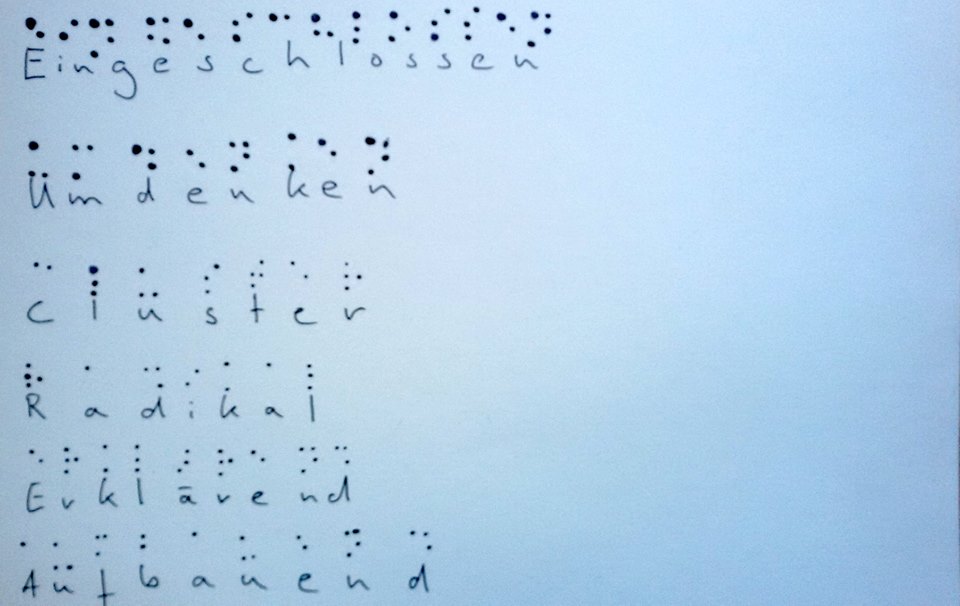 Eingeschlossen
Umdenken
Cluster
Radikal
Erklärend
Aufbauend